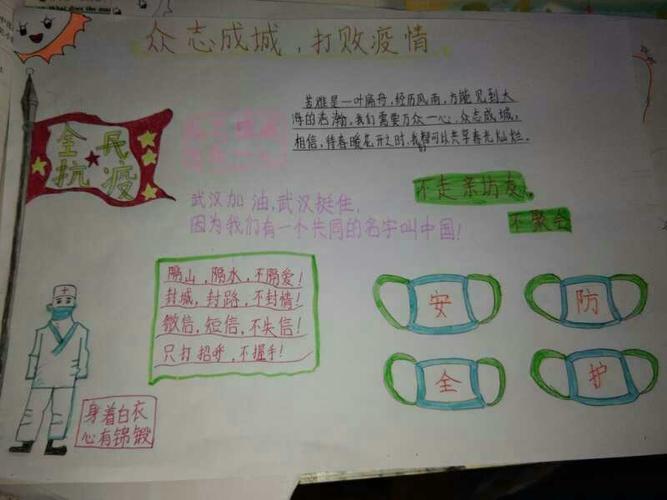 众志成城，打败疫情
苦难是一叶扁舟，经历风雨，方能见到大
海的浩瀚，我们需要万众一心，众志成城，
相信，待春暖花开之时，我们可以共享春光灿烂。
全民
抗疫
武汉加油，武汉挺住，
因为我们有一个共同的名字叫中国！
不走亲访友。
不聚会
隔山，隔水，不隔爱！
封城，封路，不封情！
微信，短信，不失信！
只打招呼，不握手！
安
防
全
护
身着白衣
心有锦锻